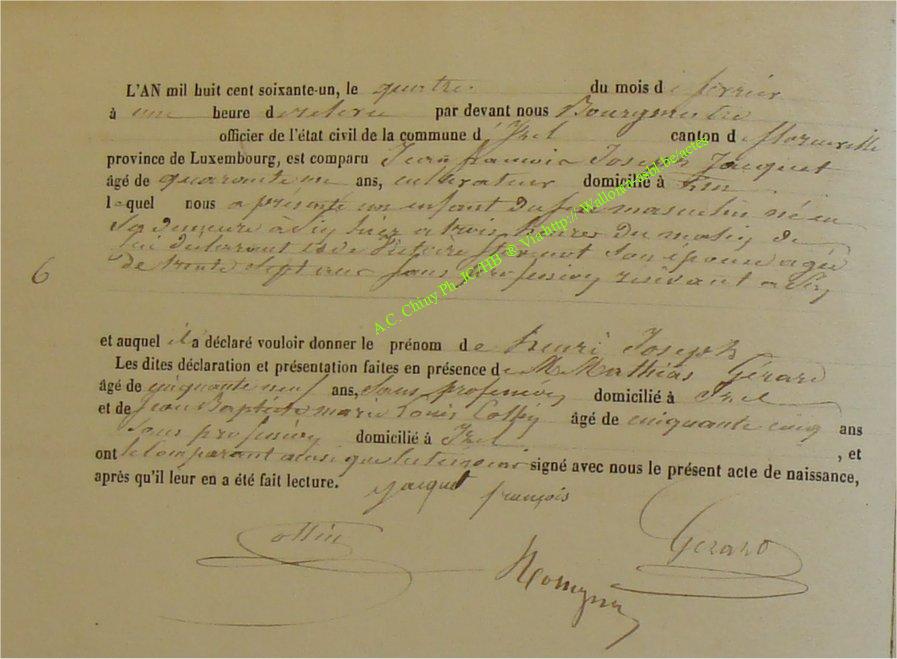 L'AN mil huit cent soixante-un, le quatre du mois de février
à une heure de relevée par devant nous Bourgmestre
officier de l'état civil de la commune d'Izel canton de Florenville
province de Luxembourg, est comparu Jean françois Joseph Jacquet
âgé de quarante ans, cultivateur domicilié à
lequel nous a présenté un enfant du sexe masculin né en
Sa demeure à hier a trois heures du matin de
lui déclarant et de Victoire Son épouse agée
6 De trente Sept ans Sans profession résidant a
et auquel il a déclaré vouloir donner le prénom de henri Joseph
Les dites déclaration et présentation faites en présence de M Mathias Gérard
âgé de cinquante neuf ans, Sans profession domicilié à Izel
et de Jean Baptiste marie Louis âgé de cinquante cinq ans
Sans profession domicilié à Izel , et
ont le Comparant ainsi que les témoins signé avec nous le présent acte de naissance,
après qu'il leur en a été fait lecture. jacquet françois
Gerard
A.C. Chiny Ph.JC/HB ® Via http://Wallonia.asbl.be/actes